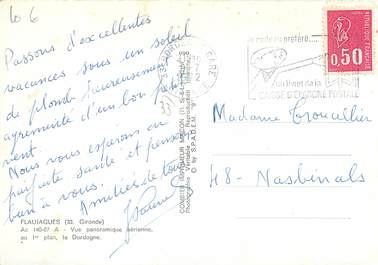 Passons d'excellentes
vacances sous un soleil
de plomb heureusement
agrémenté d'un bon petit
vent.
Nous vous espérons en
parfaite santé et pensons
bien à vous.
Amitiés de tous
FLAUJAGUES (33. Gironde)
Ac 140-07 A - Vue panoramique aérienne,
au 1er plan, la Dordogne.
COMBIER IMPRIMEUR MACON
Photographie Véritable Reproduction Interdite
© by S.P.A.D.E.M.
CAISSE D'EPARGNE POSTALE
REPUBLIQUE FRANÇAISE
0,50
Madame Trouillier
48 - Nasbinals